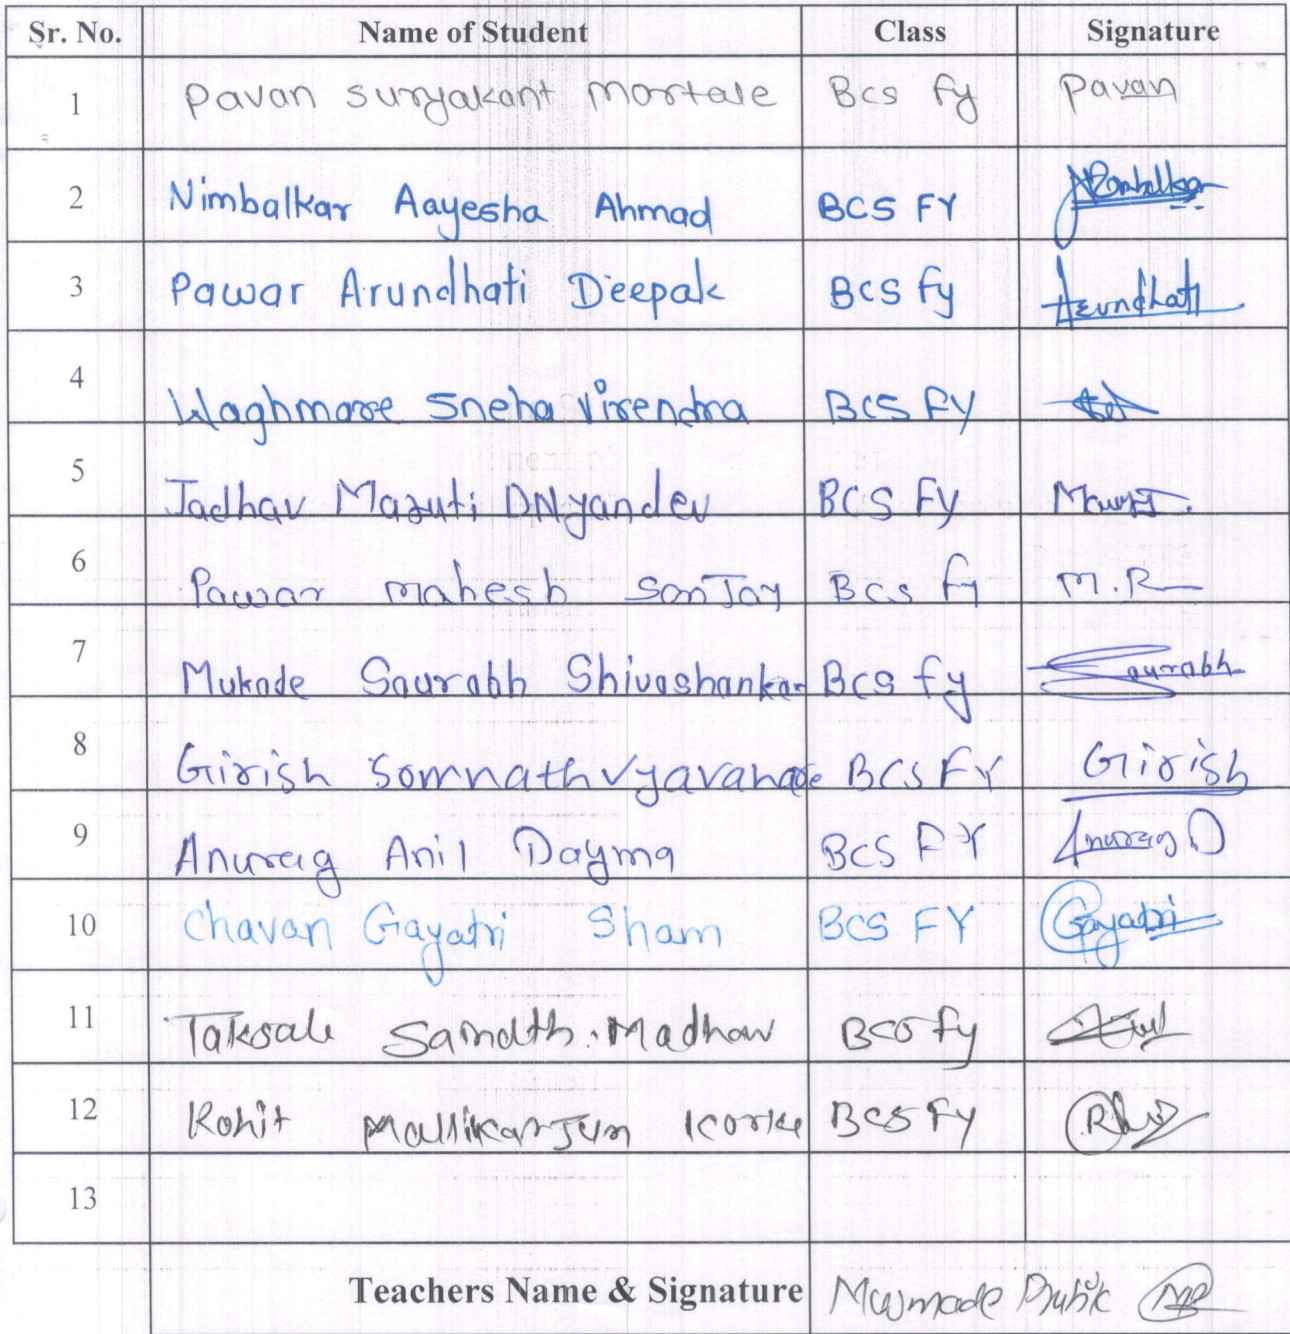 Sr. No. Name of Student Class Signature
1 Pavan Suryakant Mortale Bcs fy Pavan
2 Nimbalkar Aayesha Ahmad BCS FY
3 Pawar Arundhati Deepak BCS fy Arundhati
4 Waghmare Sneha Virendra BCS FY
5 Jadhav Maruti DNyandev BCS Fy
6 Pawar mahesh SanJay BCs fy
7 Mukade Saurabh Shivashankar BCS fy Saurabh
8 Girish Somnath Vyavahare BCS FY Girish
9 Anurag Anil Dayma BCS FY Anurag D
10 Chavan Gayatri Sham BCS FY Gayatri
11 Taksale Samarth. Madhav BCS fy
12 Rohit Mallikarjun Korke BCS Fy
13
Teachers Name & Signature